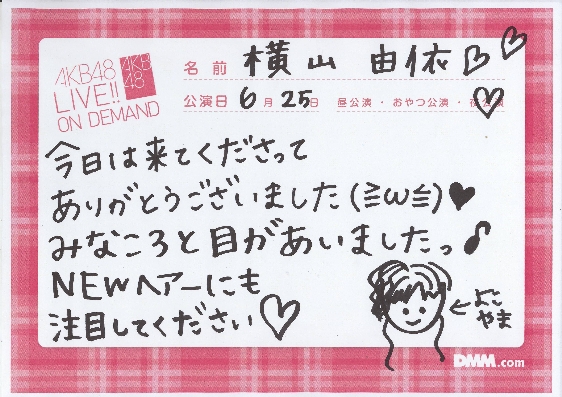 AKB48
LIVE!!
ON DEMAND
AKB
48
名前 横山 由依♡♡
公演日 6月 25日 昼公演・おやつ公演・夜公演
今日は来てくださって
ありがとうございました(≧ω≦)♥
みなころと目があいましたっ♪
NEWヘアーにも
注目してください♡
←よこ
やま
DMM.com